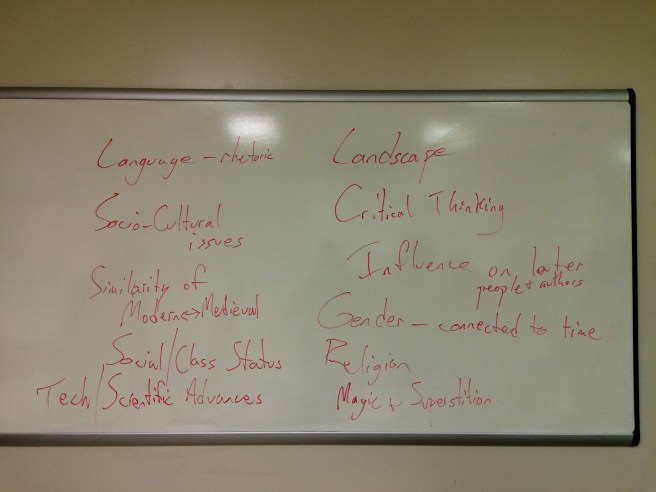 Language - rhetoric
Socio-Cultural
issues
Similarity of
Modern↔Medieval
Social/Class Status
Tech/Scientific Advances
Landscape
Critical Thinking
Influence on later
people + authors
Gender - connected to time
Religion
Magic + Superstition